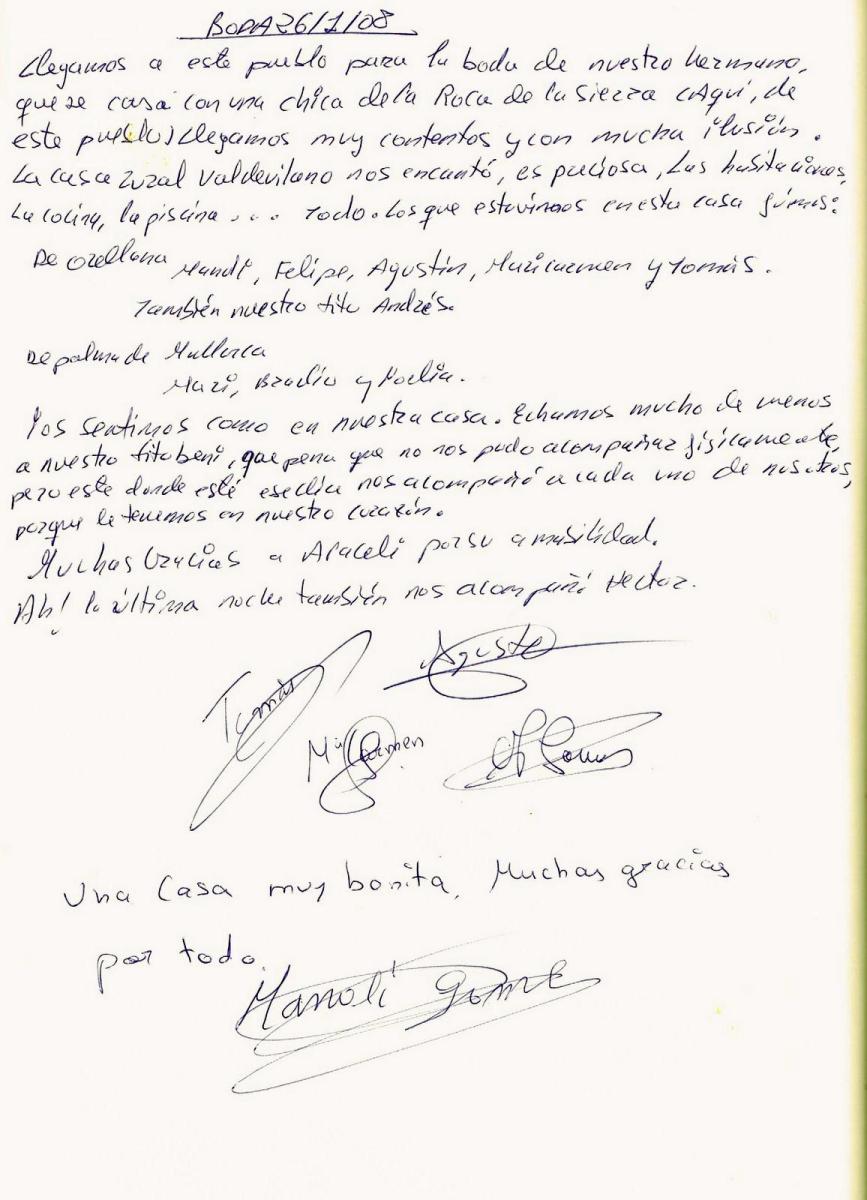 BODA 26/1/08
Llegamos a este pueblo para la boda de nuestro hermano,
que se casa con una chica de la Roca de la Sierra (Aquí, de
este pueblo) Llegamos muy contentos y con mucha ilusión.
La casa rural Valdevilano nos encantó, es preciosa, Las habitaciones,
La cocina, la piscina .... Todo. Los que estuvimos en esta casa fuimos:
De Orellana Manoli, Felipe, Agustín, Maricarmen y Tomás.
También nuestro tito Andrés.
De palma de Mallorca
Mari, Braulio y Noelia.
Nos sentimos como en nuestra casa. Echamos mucho de menos
a nuestro tito beni, que pena que no nos pudo acompañar fisicamente,
pero este donde esté ese dia nos acompañó a cada uno de nosotros,
porque le tenemos en nuestro corazón.
Muchas Gracias a Araceli por su amabilidad.
¡Ah! la última noche también nos acompañó Hector.
Agust
Tomás
Mª Carmen
Una Casa muy bonita, Muchas gracias
por todo.
Manoli